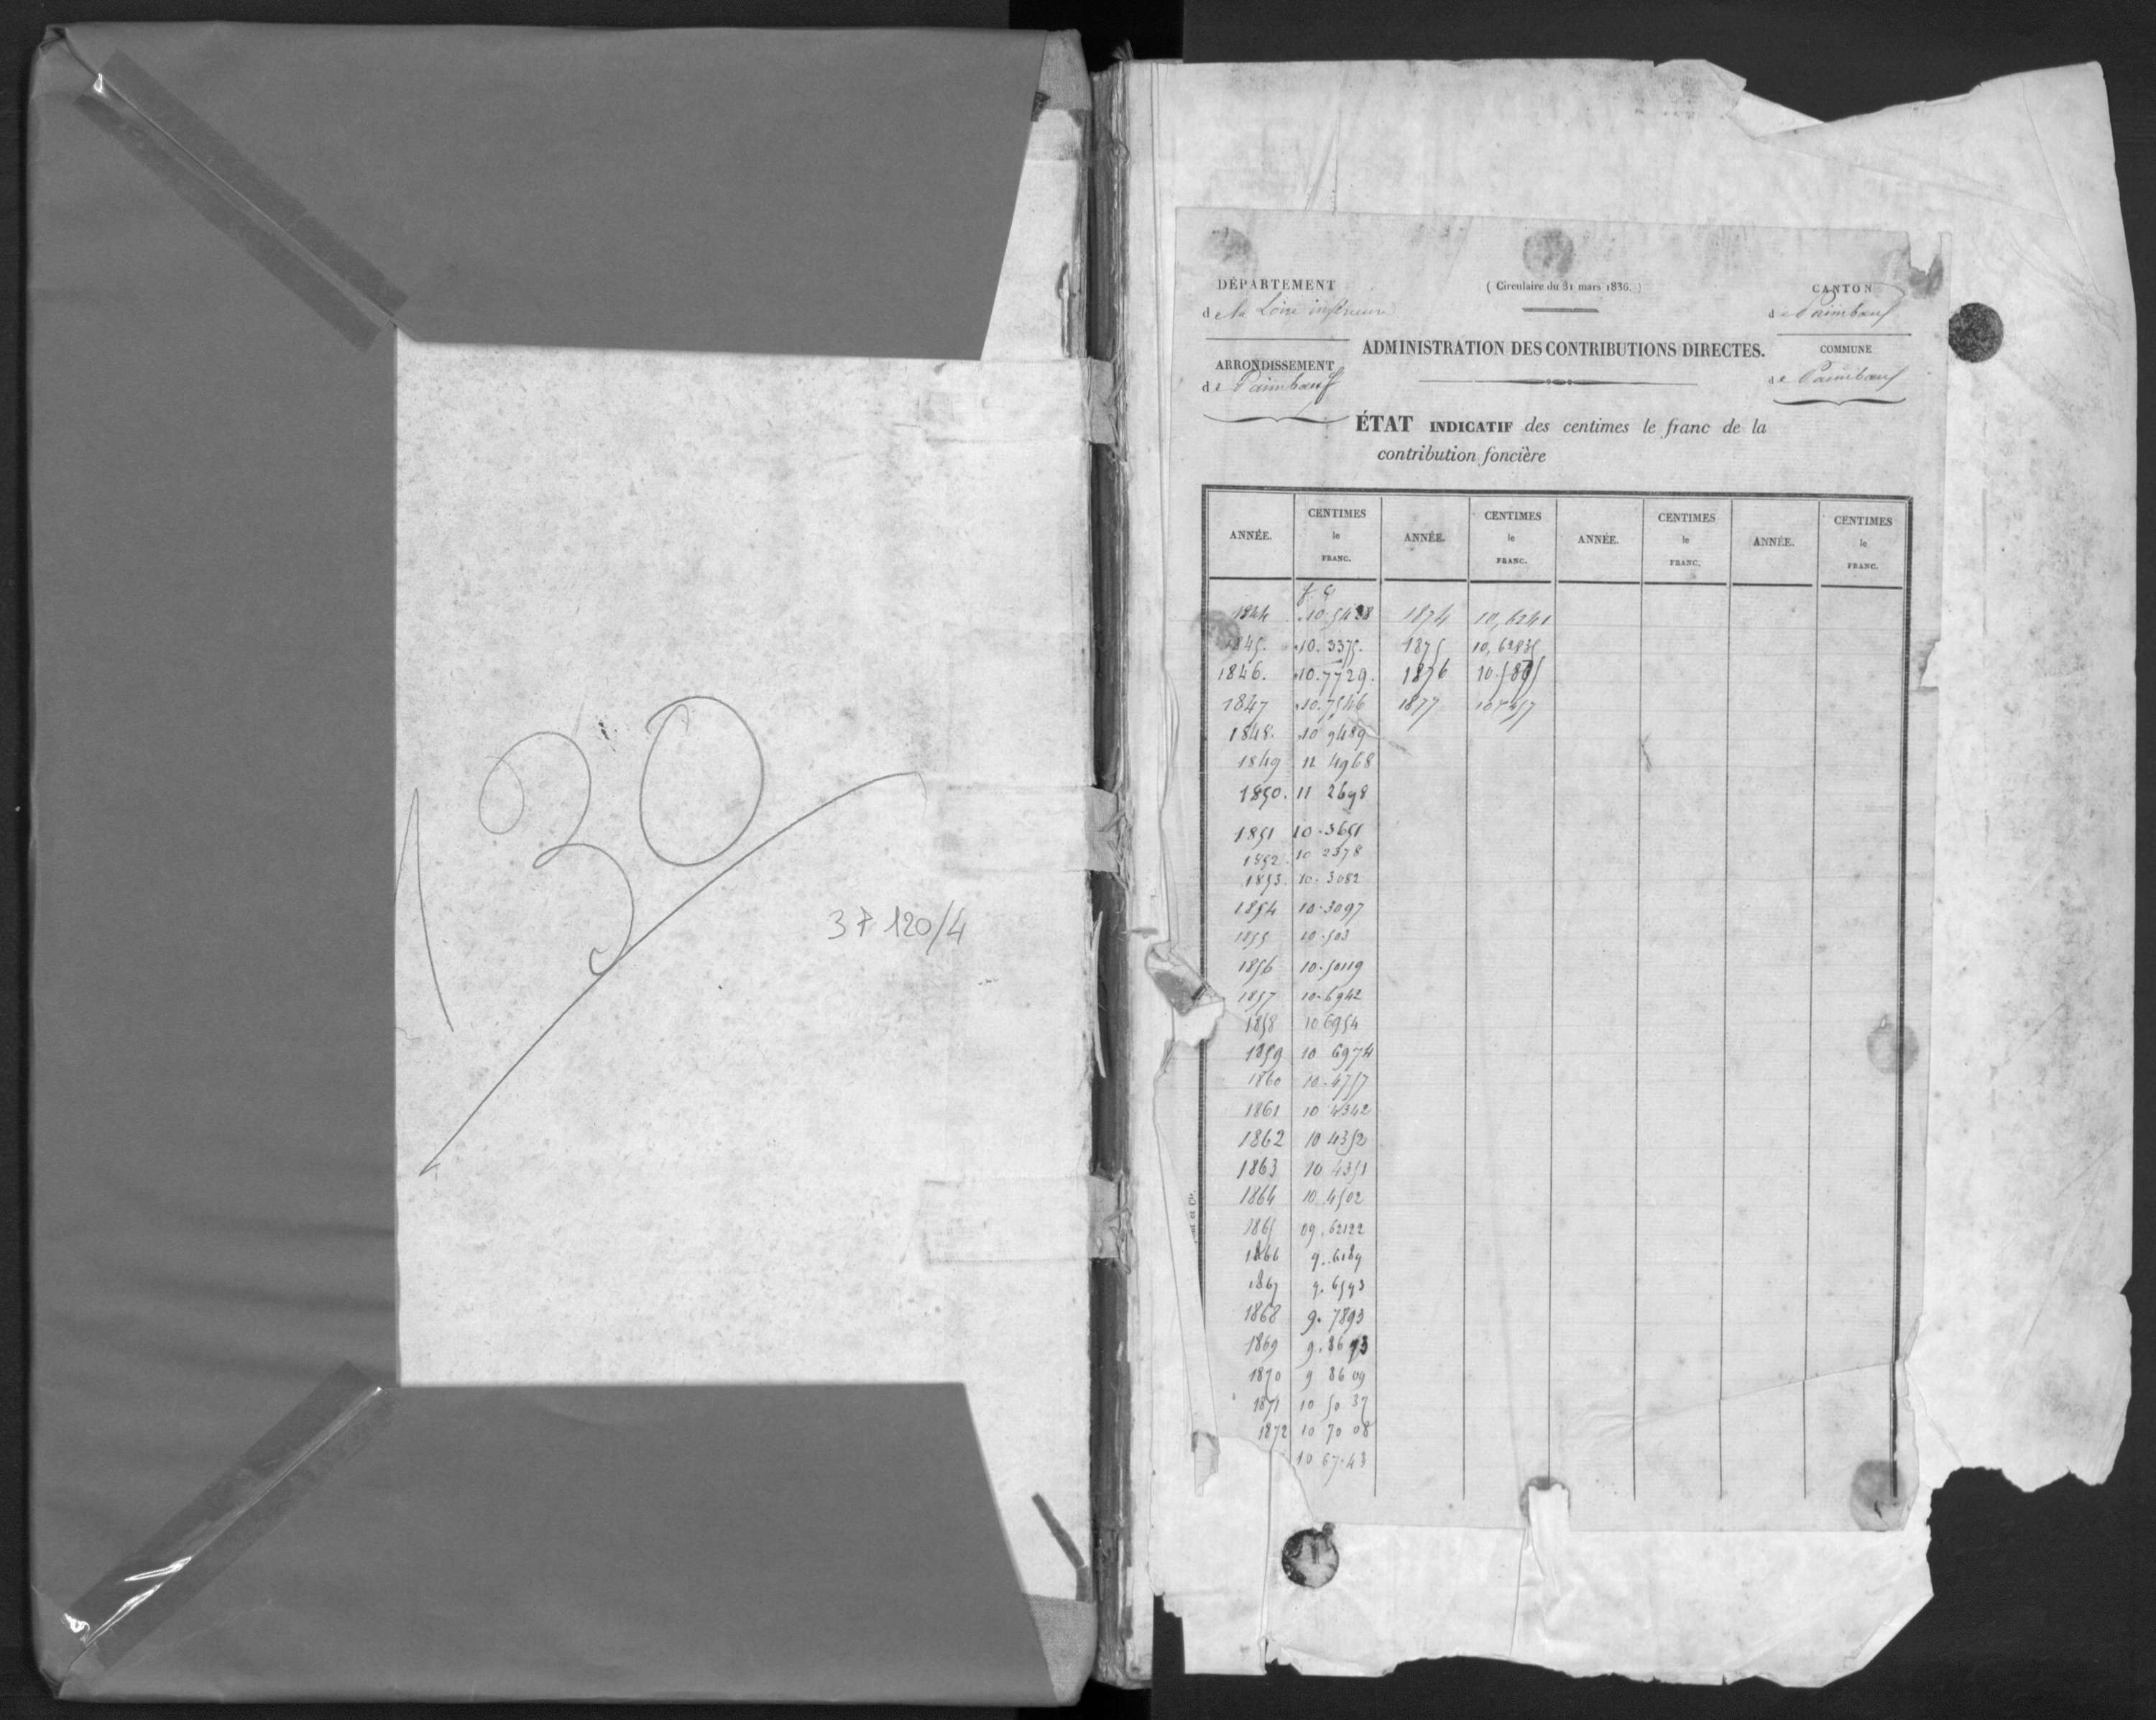 130
3 P 120/4
DÉPARTEMENT
de la Loire inférieure
ARRONDISSEMENT
de Paimboeuf
( Circulaire du 31 mars 1836. )
CANTON
de Paimboeuf
COMMUNE
de Paimboeuf
ADMINISTRATION DES CONTRIBUTIONS DIRECTES.
ÉTAT INDICATIF des centimes le franc de la
contribution foncière
ANNÉE. CENTIMES le FRANC. ANNÉE. CENTIMES le FRANC. ANNÉE. CENTIMES le FRANC. ANNÉE. CENTIMES le FRANC.
f. c
1844 1874 10,6241
1845. 10.3375. 1875 10,62835
1846. 10.7729. 1876
1847 10.7546 1877
1848. 10 9489
1849 11 4968
1850. 11 2698
1851 10.3651
1852. 10 2378
1853. 10.3082
1854 10.3097
1855 10.503
1856 10.50119
1857 10.6942
1858 10 6954
1859 10 6974
1860 10.4757
1861 10 4342
1862 10 4352
1863 10 4351
1864 10.4502
1865 09.62122
1866 9.6189
1867 9.6593
1868 9.7893
1869 9.8693
1870 9 86 09
1871 10 50 37
1872 10 70 08
10 67.43